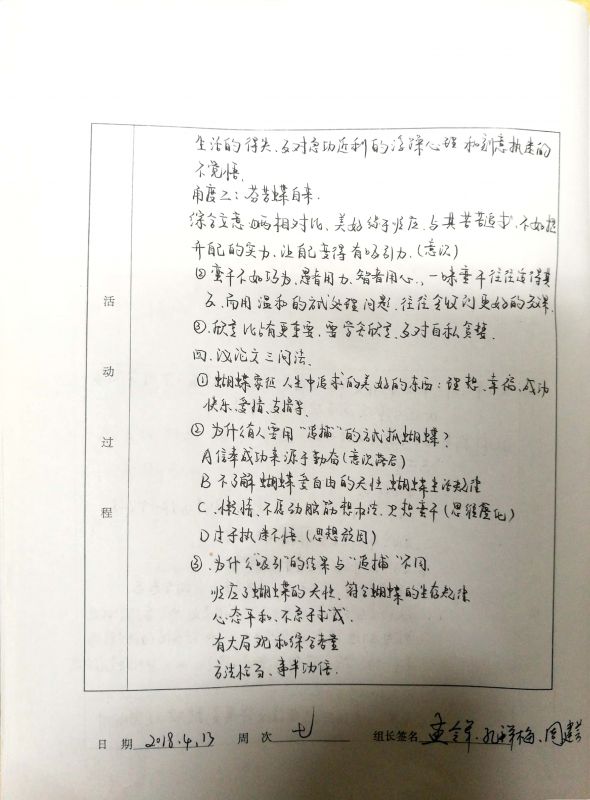 生活的得失、反对急功近利的浮躁心理和刻意执迷的
不觉悟。
角度之二：芬芳蝶自来。
综合立意 两相对比、美好缘于顺应、与其苦苦追求、不如提
升自己的实力、让自己变得有吸引力。(意识)
② 蛮干不如巧为、愚者用力、智者用心、一味蛮干往往适得其
反、而用温和的方式处理问题、往往会收到更好的效果.
③、欣赏比占有更重要、要学会欣赏、反对自私贪婪.
四、议论文三问法.
① 蝴蝶象征人生中追求的美好的东西：理想、幸福、成功
快乐、爱情、友情等.
② 为什么有人要用“追捕”的方式抓蝴蝶？
A 信奉成功来源于勤奋(意识落后)
B 不了解蝴蝶爱自由的天性 蝴蝶生活规律
C、懒惰、不愿动脑筋想办法、只想蛮干(思维僵化)
D 过于执迷不悟.(思想顽固)
③、为什么“吸引”的结果与“追捕”不同.
顺应了蝴蝶的天性、符合蝴蝶的生存规律
心态平和、不急于求成.
有大局观和综合考量
方法恰当、事半功倍.
活
动
过
程
日 期 2018.4.13 周 次 七 组长签名